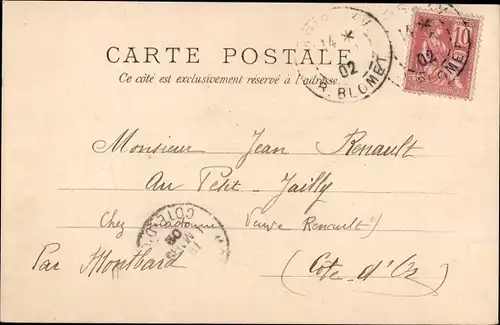 PARIS XV
14 * 02
R. BLOMET
10
CARTE POSTALE
Ce côté est exclusivement réservé à l'adresse.
Monsieur Jean Renault
Au Petit-Jailly
Chez Veuve Renault)
Par Montbard (Côte-d'Or)
MARS
02
CÔTE-D'OR